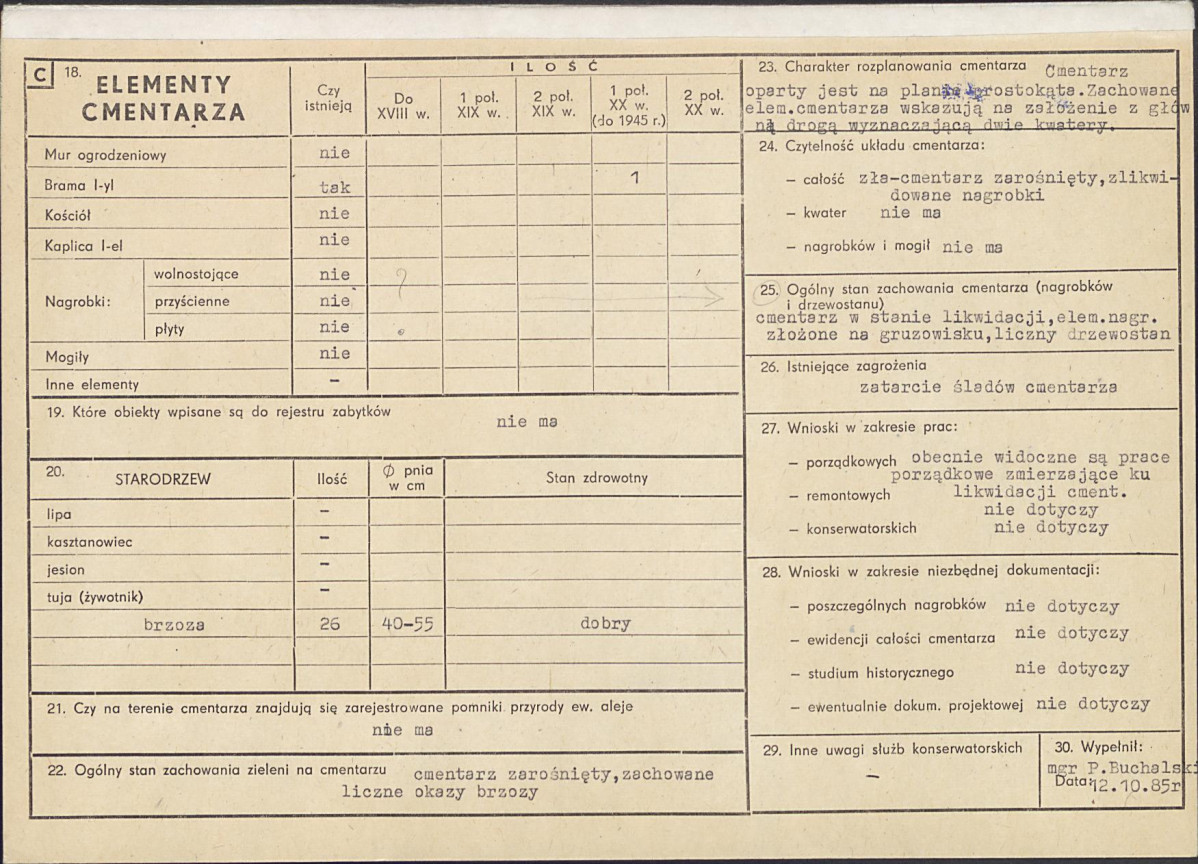 C 18. ELEMENTY CMENTARZA
Czy istnieją
ILOŚĆ
Do XVIII w.
1 poł. XIX w.
2 poł. XIX w.
1 poł. XX w. (do 1945 r.)
2 poł. XX w.
Mur ogrodzeniowy nie
Brama I-yl tak 1
Kościół nie
Kaplica I-el nie
Nagrobki: wolnostojące nie ?
przyścienne nie
płyty nie
Mogiły nie
Inne elementy –
19. Które obiekty wpisane są do rejestru zabytków nie ma
20. STARODRZEW Ilość Ø pnia w cm Stan zdrowotny
lipa –
kasztanowiec –
jesion –
tuja (żywotnik) –
brzoza 26 40-55 dobry
21. Czy na terenie cmentarza znajdują się zarejestrowane pomniki przyrody ew. aleje
nie ma
22. Ogólny stan zachowania zieleni na cmentarzu cmentarz zarośnięty,zachowane
liczne okazy brzozy
23. Charakter rozplanowania cmentarza Cmentarz
oparty jest na planie prostokąta.Zachowane
elem.cmentarza wskazują na założenie z głów
ną drogą wyznaczającą dwie kwatery.
24. Czytelność układu cmentarza:
– całość zła-cmentarz zarośnięty,zlikwi-
dowane nagrobki
– kwater nie ma
– nagrobków i mogił nie ma
25. Ogólny stan zachowania cmentarza (nagrobków
i drzewostanu)
cmentarz w stanie likwidacji,elem.nagr.
złożone na gruzowisku,liczny drzewostan
26. Istniejące zagrożenia
zatarcie śladów cmentarza
27. Wnioski w zakresie prac:
– porządkowych obecnie widoczne są prace
porządkowe zmierzające ku
– remontowych likwidacji cment.
nie dotyczy
– konserwatorskich nie dotyczy
28. Wnioski w zakresie niezbędnej dokumentacji:
– poszczególnych nagrobków nie dotyczy
– ewidencji całości cmentarza nie dotyczy
– studium historycznego nie dotyczy
– ewentualnie dokum. projektowej nie dotyczy
29. Inne uwagi służb konserwatorskich
–
30. Wypełnił:
mgr P.Buchalski
Data:12.10.85r